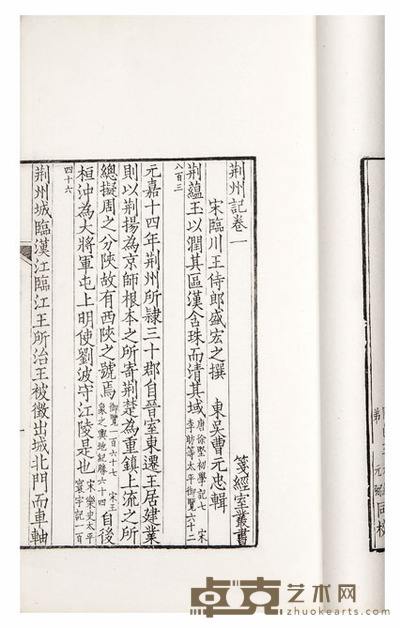 荆州記卷一　箋經室叢書
宋臨川王侍郎盛宏之撰　東吳曹元忠輯
荆藴玉以潤其區漢含珠而清其域唐徐堅初學記七　宋李昉等太平御覽六十二
八百三
元嘉十四年荆州所隸三十郡自晉室東遷王居建業
則以荆揚為京師根本之所寄荆楚為重鎮上流之所
總擬周之分陝故有西陝之號焉御覽一百六十七　宋王象之輿地紀勝六十四自後
桓沖為大將軍屯上明使劉波守江陵是也宋樂史太平寰宇記一百
四十六
荆州城臨漢江臨江王所治王被徵出城北門而車軸
弟　元　同校
卓克艺术网
zhuokearts.com